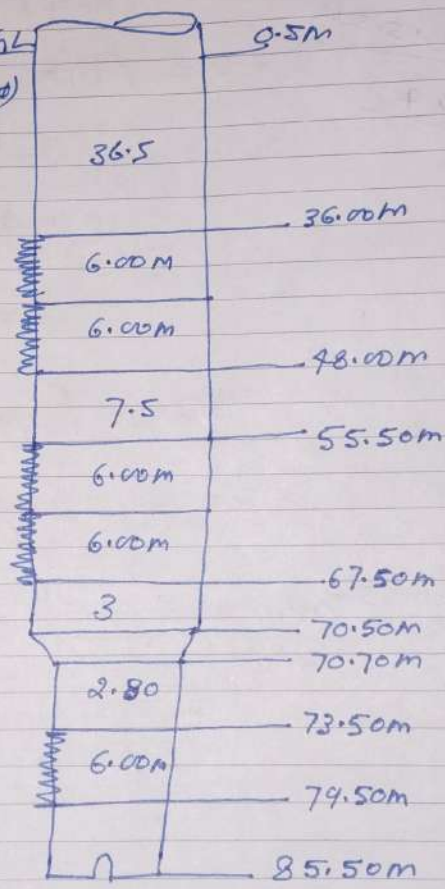 0.5M
36.5
36.00m
6.00M
6.00M
48.00m
7.5
55.50m
6.00m
6.00m
67.50m
3
70.50m
70.70m
2.80
73.50m
6.00m
79.50m
85.50m